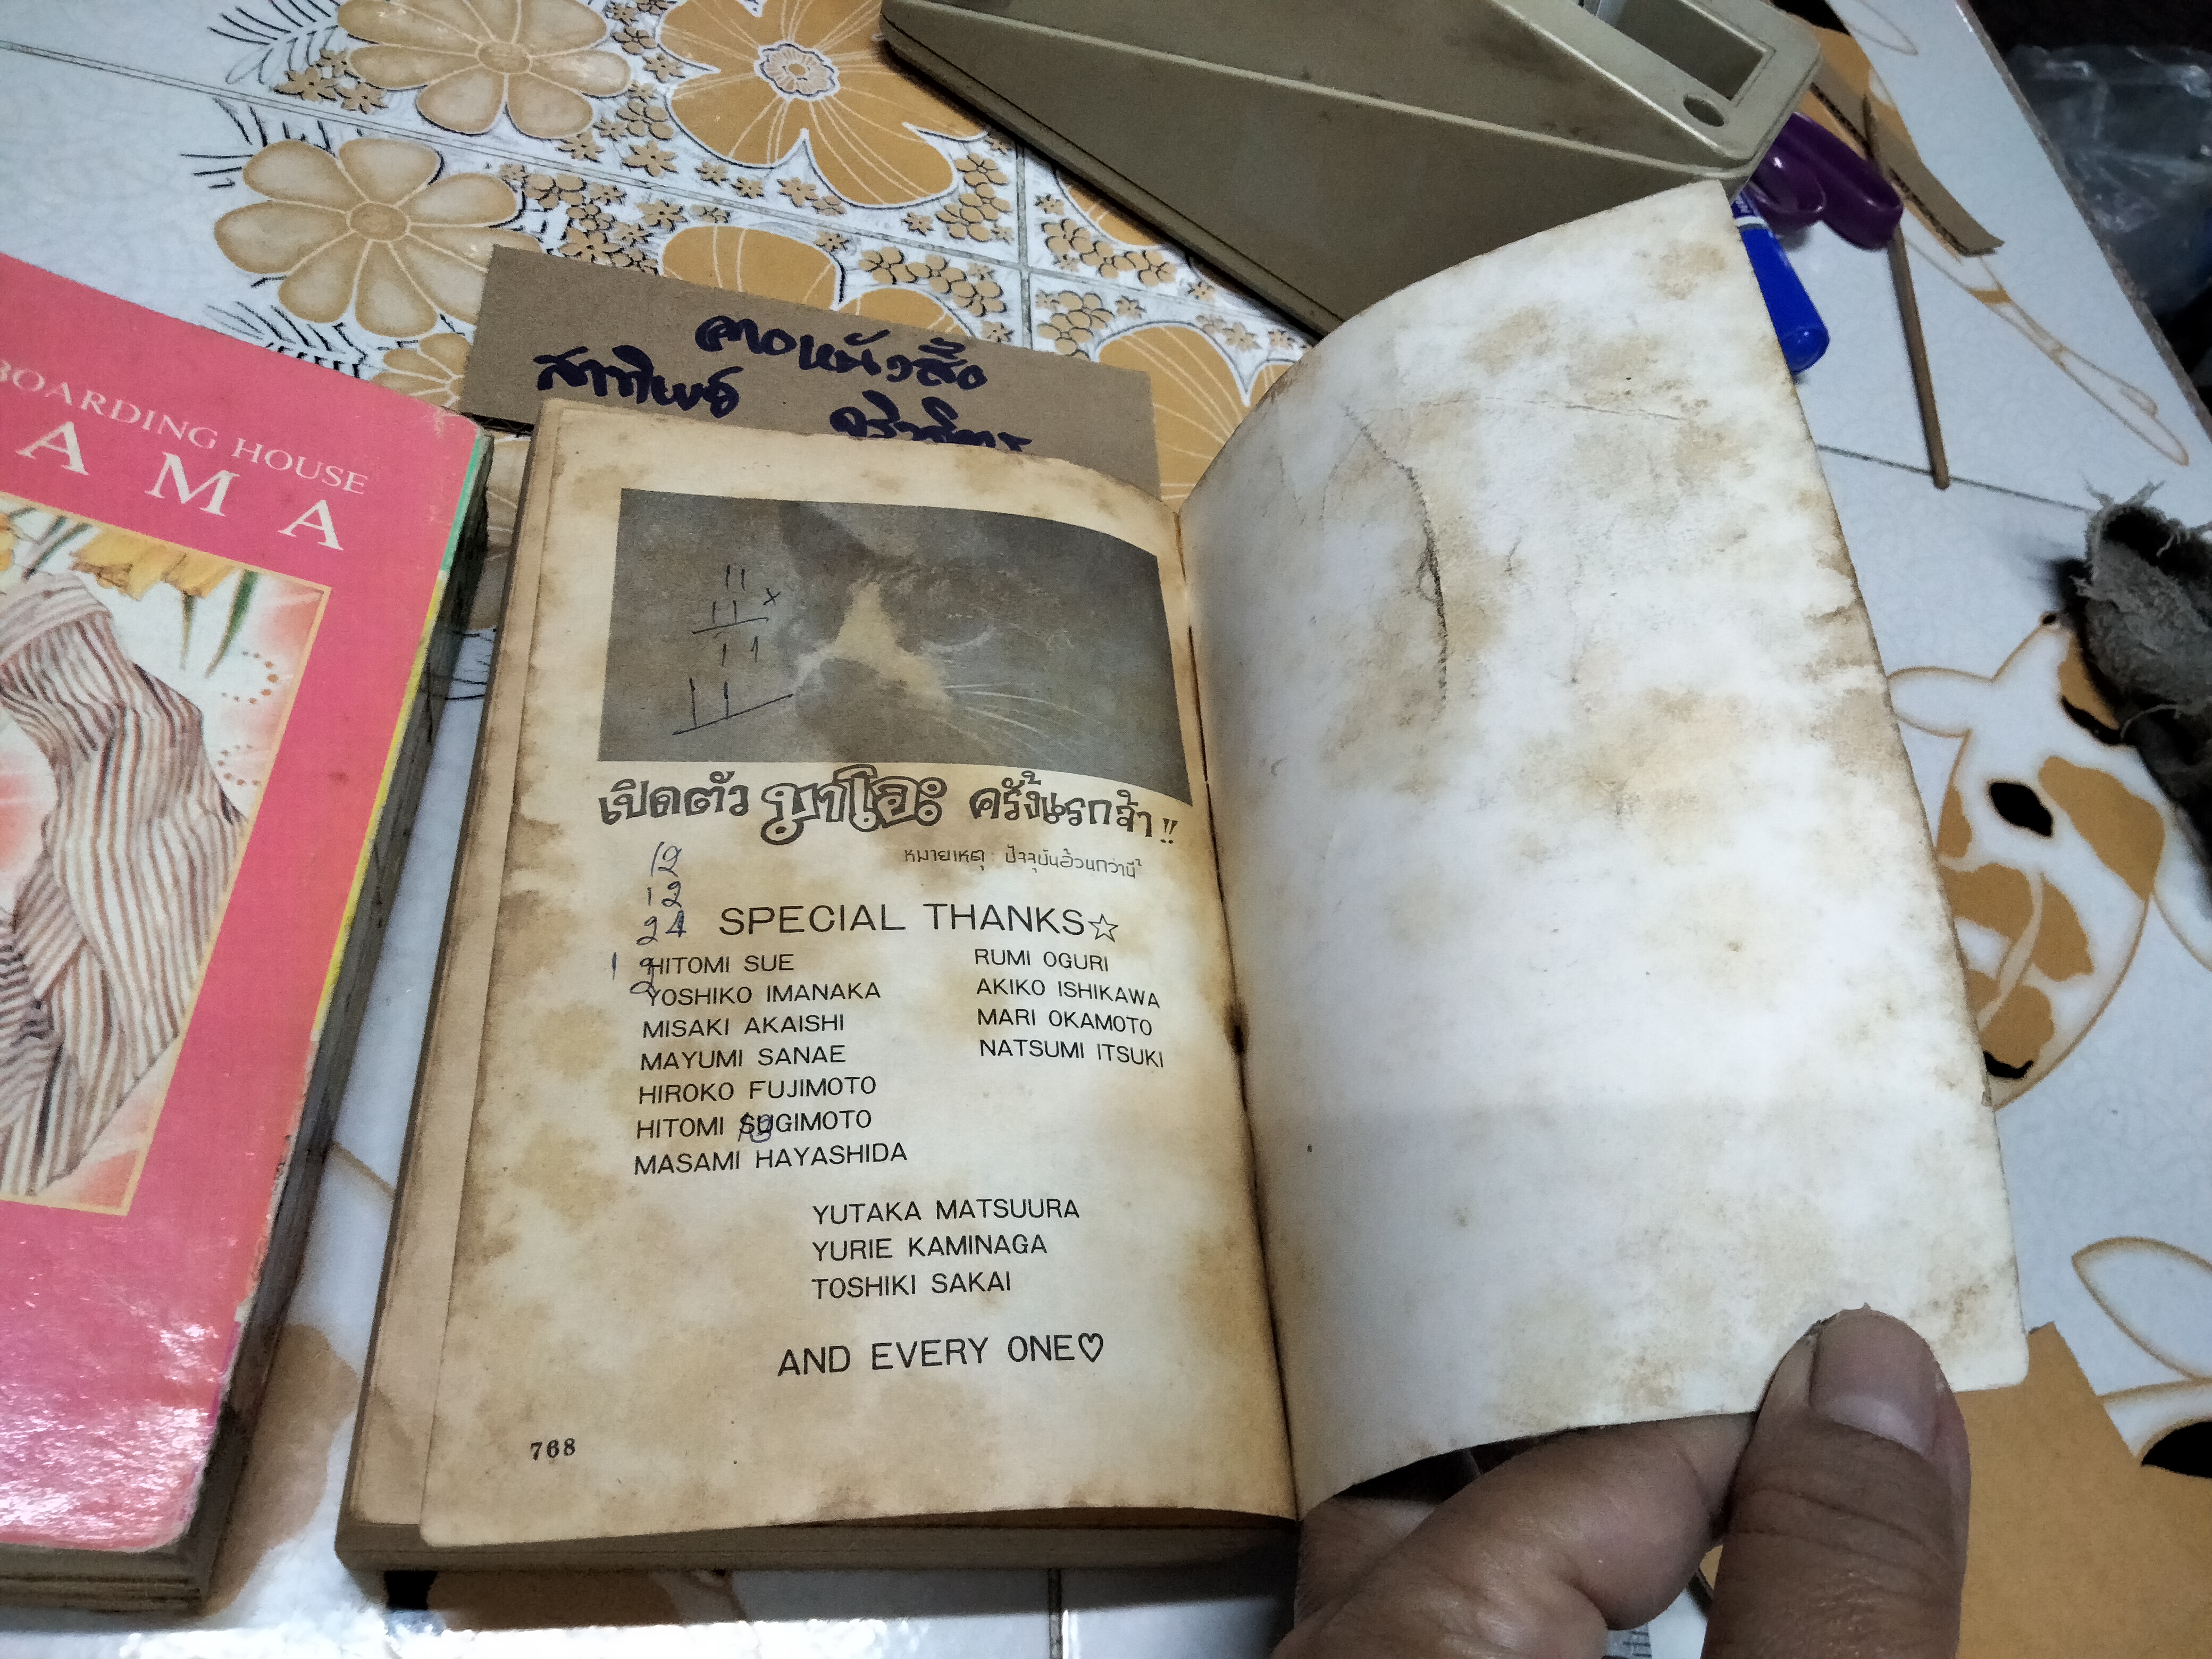 BOARDING HOUSE
A M A
สาทิพย์
11
11 ×
11
11
เปิดตัว นาโอะ ครั้งแรกจ้า!!
หมายเหตุ : ปัจจุบันอ้วนกว่านี้
12
12
24
SPECIAL THANKS☆
HITOMI SUE
YOSHIKO IMANAKA
MISAKI AKAISHI
MAYUMI SANAE
HIROKO FUJIMOTO
HITOMI SUGIMOTO
MASAMI HAYASHIDA
RUMI OGURI
AKIKO ISHIKAWA
MARI OKAMOTO
NATSUMI ITSUKI
YUTAKA MATSUURA
YURIE KAMINAGA
TOSHIKI SAKAI
AND EVERY ONE♡
768